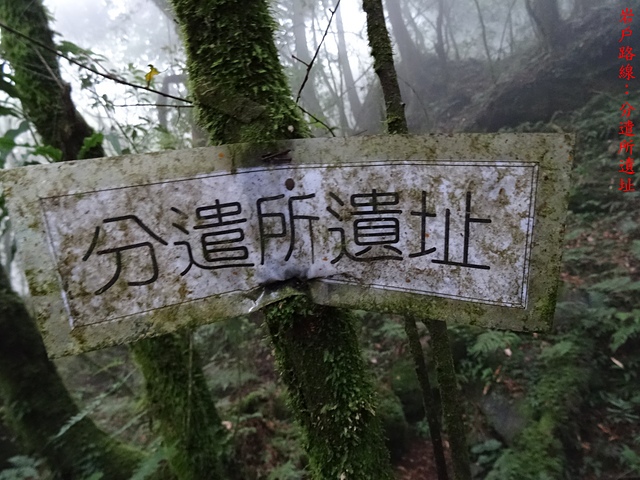 分遣所遺址
岩戸路線：分遣所遺址